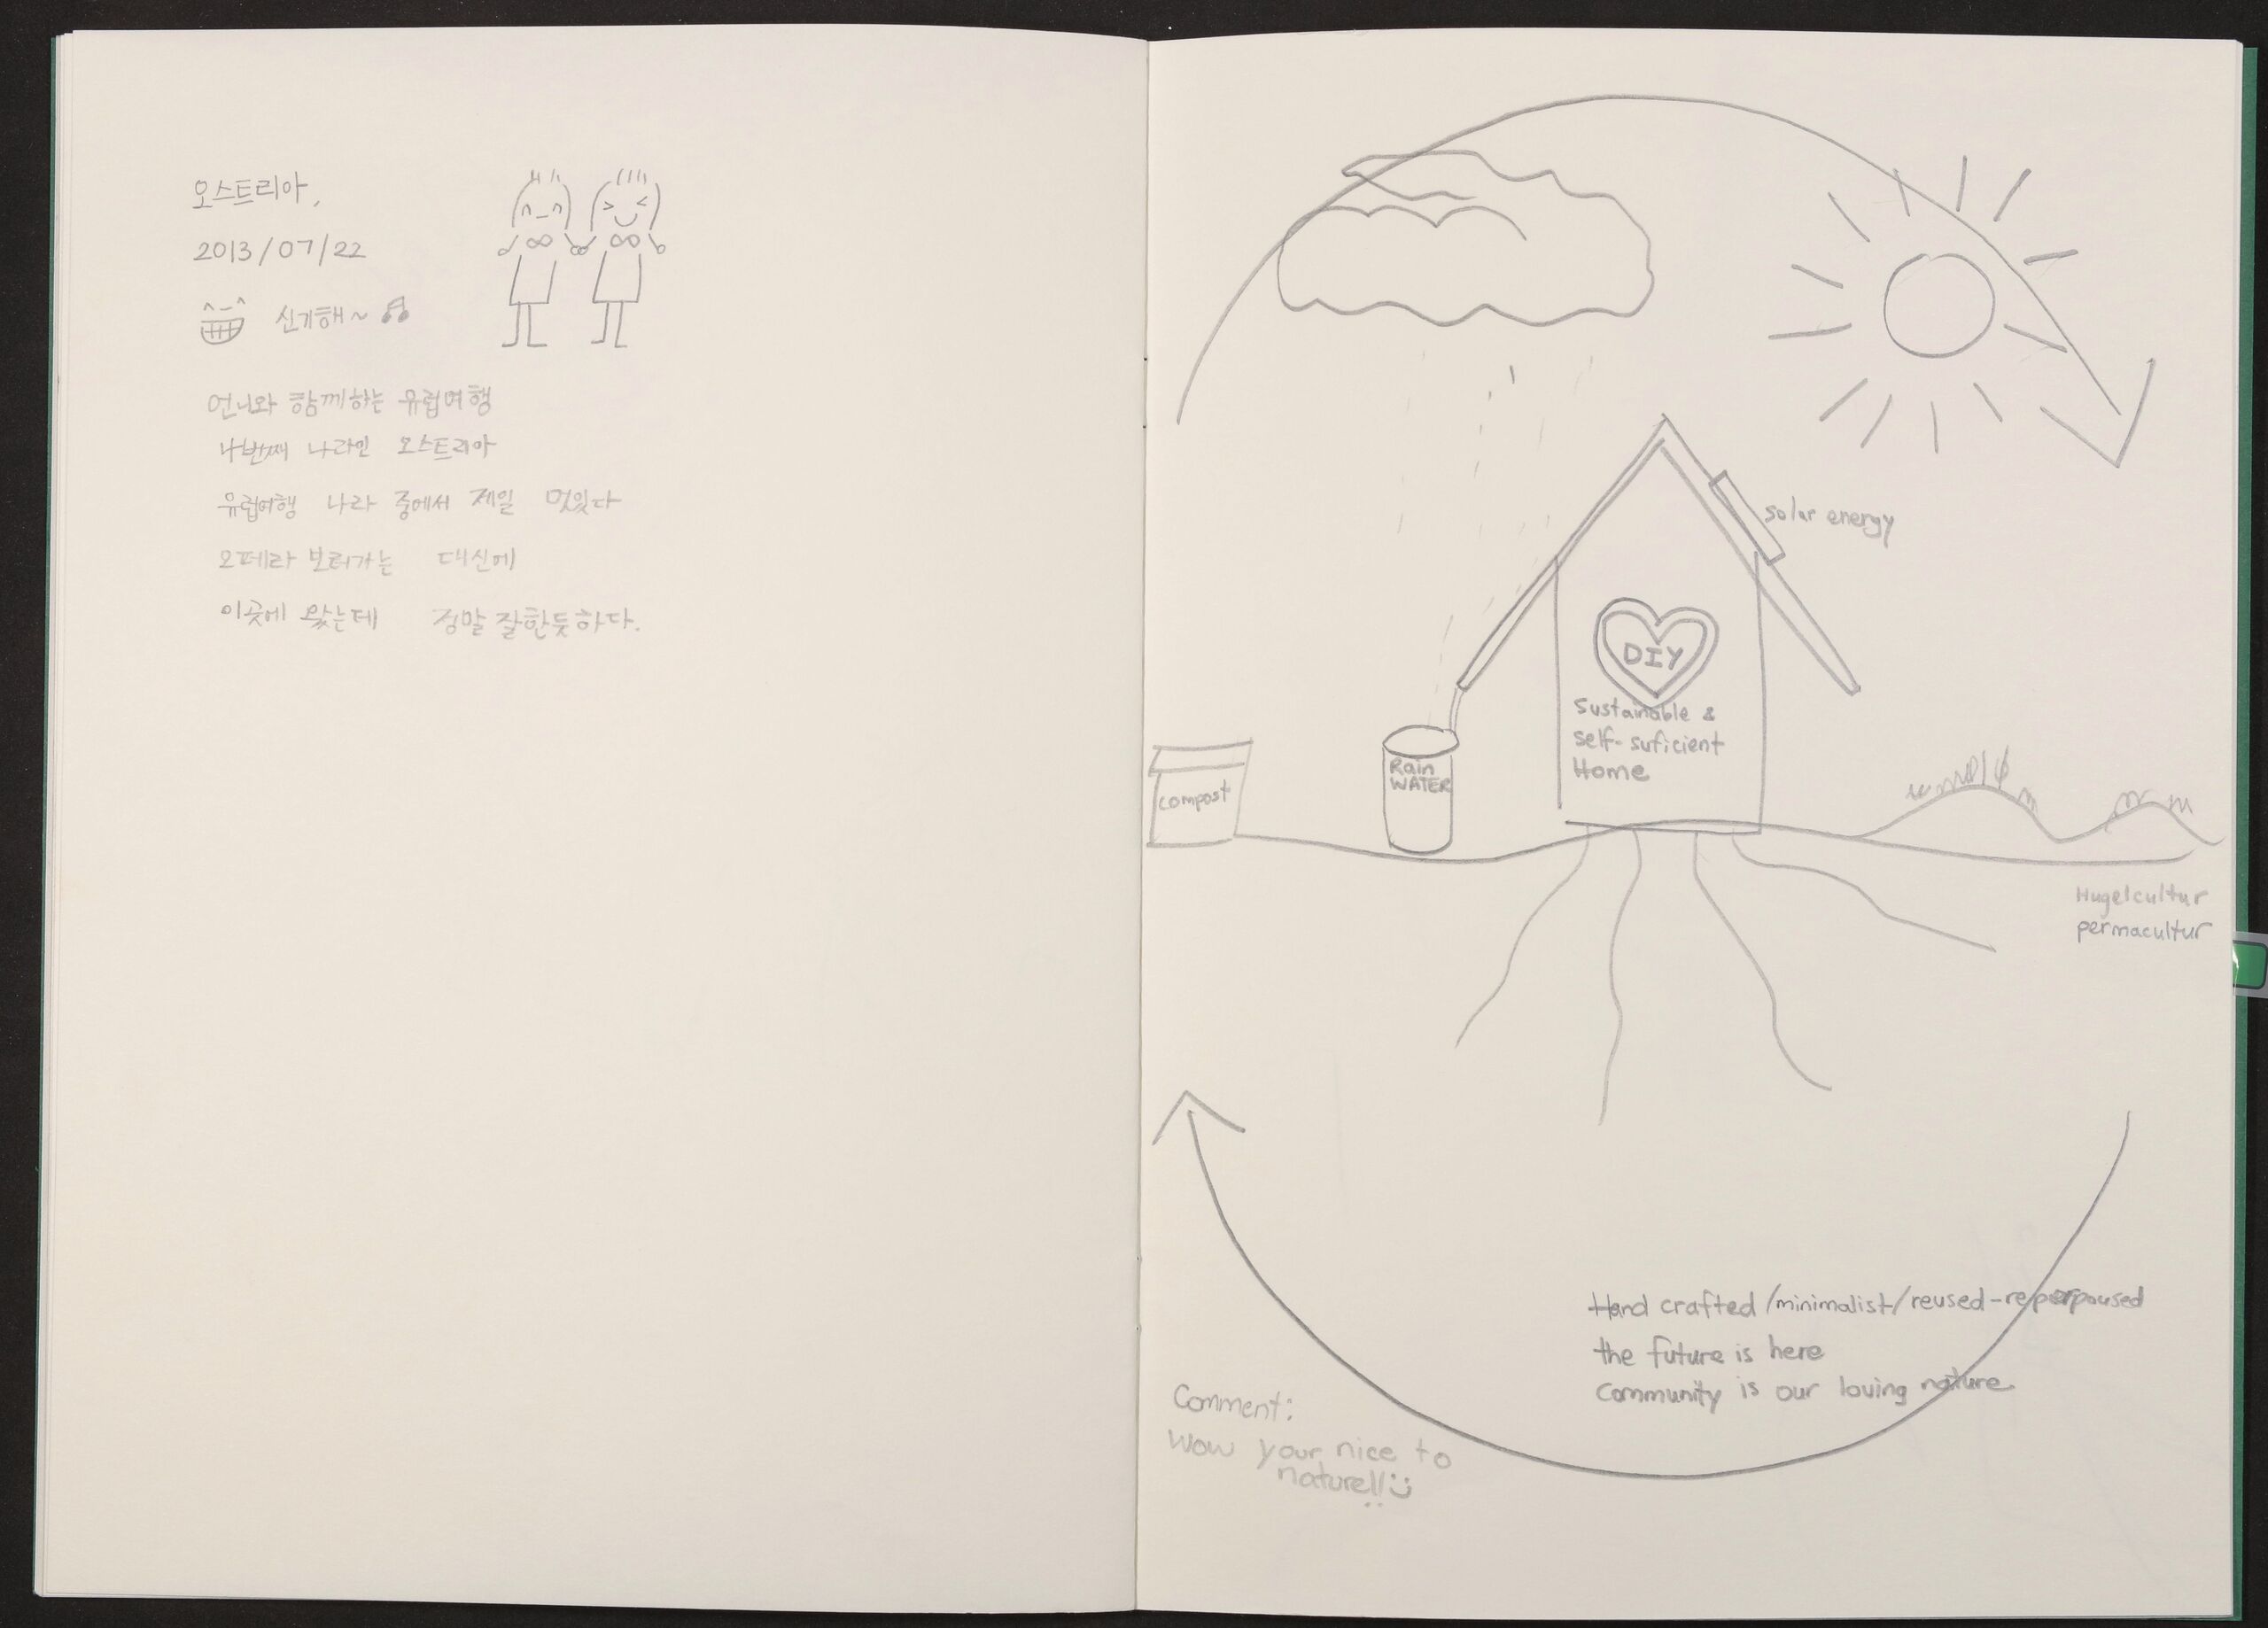 오스트리아,
2013/07/22
신기해~
언니와 함께하는 유럽여행
나번째 나라인 오스트리아
유럽여행 나라 중에서 제일 멋있다
오페라 보러가는 대신에
이곳에 왔는데 정말 잘한듯하다.
solar energy
DIY
Sustainable &
self-suficient
Home
Rain
WATER
compost
Hugelcultur
permacultur
Hand crafted/minimalist/reused-reporpoused
the future is here
Community is our loving nature
Comment:
Wow your nice to
nature!!